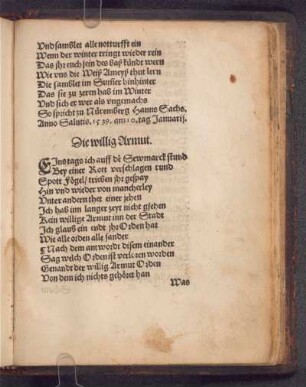 Vnd samblet alle notturfft ein
Wenn der winter tringt wieder rein
Das jhr euch sein des baß kündt wern
Wie vns die Weiß Ameyß thut lern
Die samblet im Summer hinhinter
Das sie zu zern hab im Winter
Vnd sich er wer als vngemachs
So spricht zu Nürmberg Hanns Sachs.
Anno Salutis. 1539. am 10. tag Januarij.
Die willig Armut.
EJns tags ich auff dē Sewmarck stund
Bey einer Rott verschlagen rund
Spott Fögel/ trieben jhr gespay
Hin vnd wieder von mancherley
Vnter andern thet einer jehen
Ich hab inn langer zeyt nicht gsehen
Kein willige Armut inn der Stadt
Ich glaub ein endt jhr Orden hat
Wie alle orden alle sander
Nach dem antwordt disem einander
Sag wilch Orden ist verloren worden
Genandt der willig Armut Orden
Von dem ich nichts gehöret han
Was